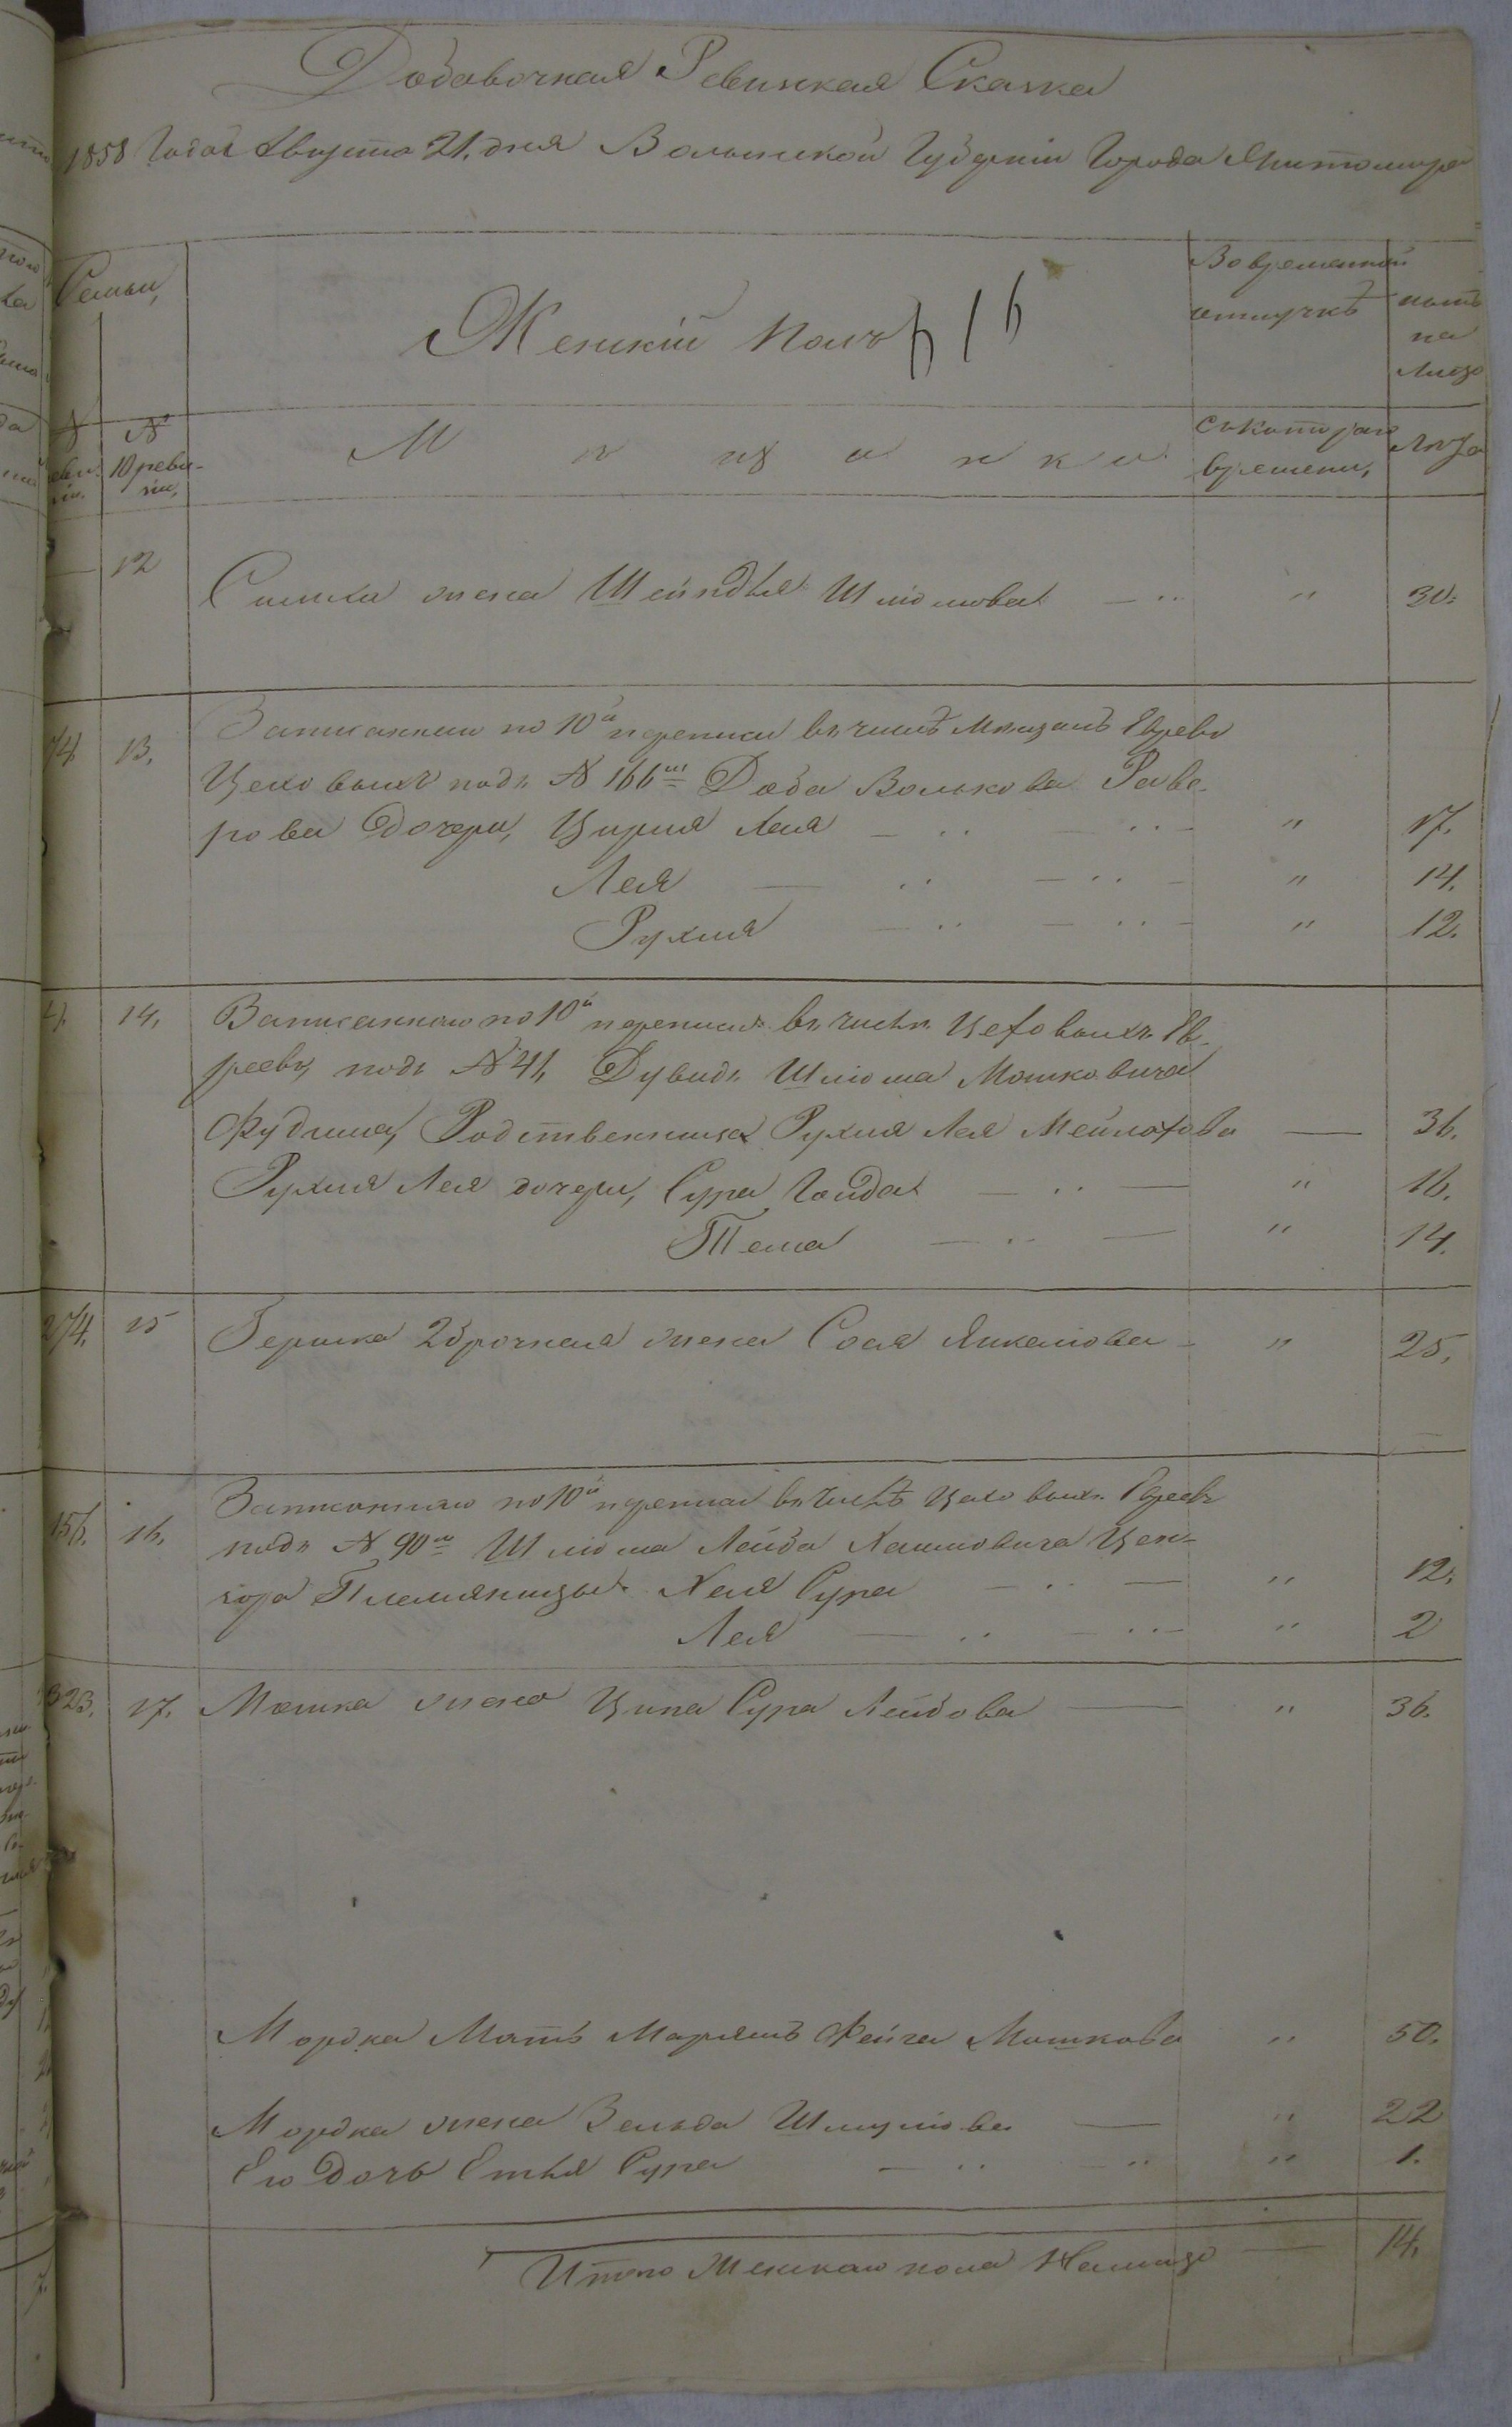 Добавочная Ревизская Сказка
1858 Года Августа 21. дня Волынской Губерніи Города Житомира
Семьи,
Женскій полъ
Во временной
отлучкѣ
нынѣ
на
лицо
№
№
10 реви-
зіи,
М ѣ щ а н к и
съ котораго
времени,
Лѣта
12
Симха жена Шейндля Шлюмова — " 30.
74. 13. Записаннаго по 10й переписи въ числѣ Мѣщанъ Евреевъ
Цеховыхъ подъ № 166мъ Доба Волькова
рова Дочери, Цирля Хая " 17.
Лея — " 14.
Рухля " 12.
14. Записаннаго по 10й переписи въ числѣ Цеховыхъ Ев-
реевъ, подъ № 41, Дувидъ Шлюма Мошковича
Фудима, Родственница Рухля Лея Мейлахова — 36.
Рухля Лея дочери, Сура Гайда — " 16.
Тема — " 14.
274. 15 Гершка 2брачная жена Сося Янкелова " 25.
156. 16. Записаннаго по 10й переписи въ числѣ Цеховыхъ Евреевъ
подъ № 90мъ Шлюма Лейба Хаимовича Цен-
зора Племянницы Хая Сура — " 12.
Лея — " 2
323. 17. Мошка жена Ципа Сура Лейбова — " 36.
Мордка Мать Марьямъ Фейга Мошкова " 50.
Мордка жена Зельда Шмулюва — " 22
Его Дочь Етля Сура — " 1.
Итого Женскаго пола На лицо — 14.